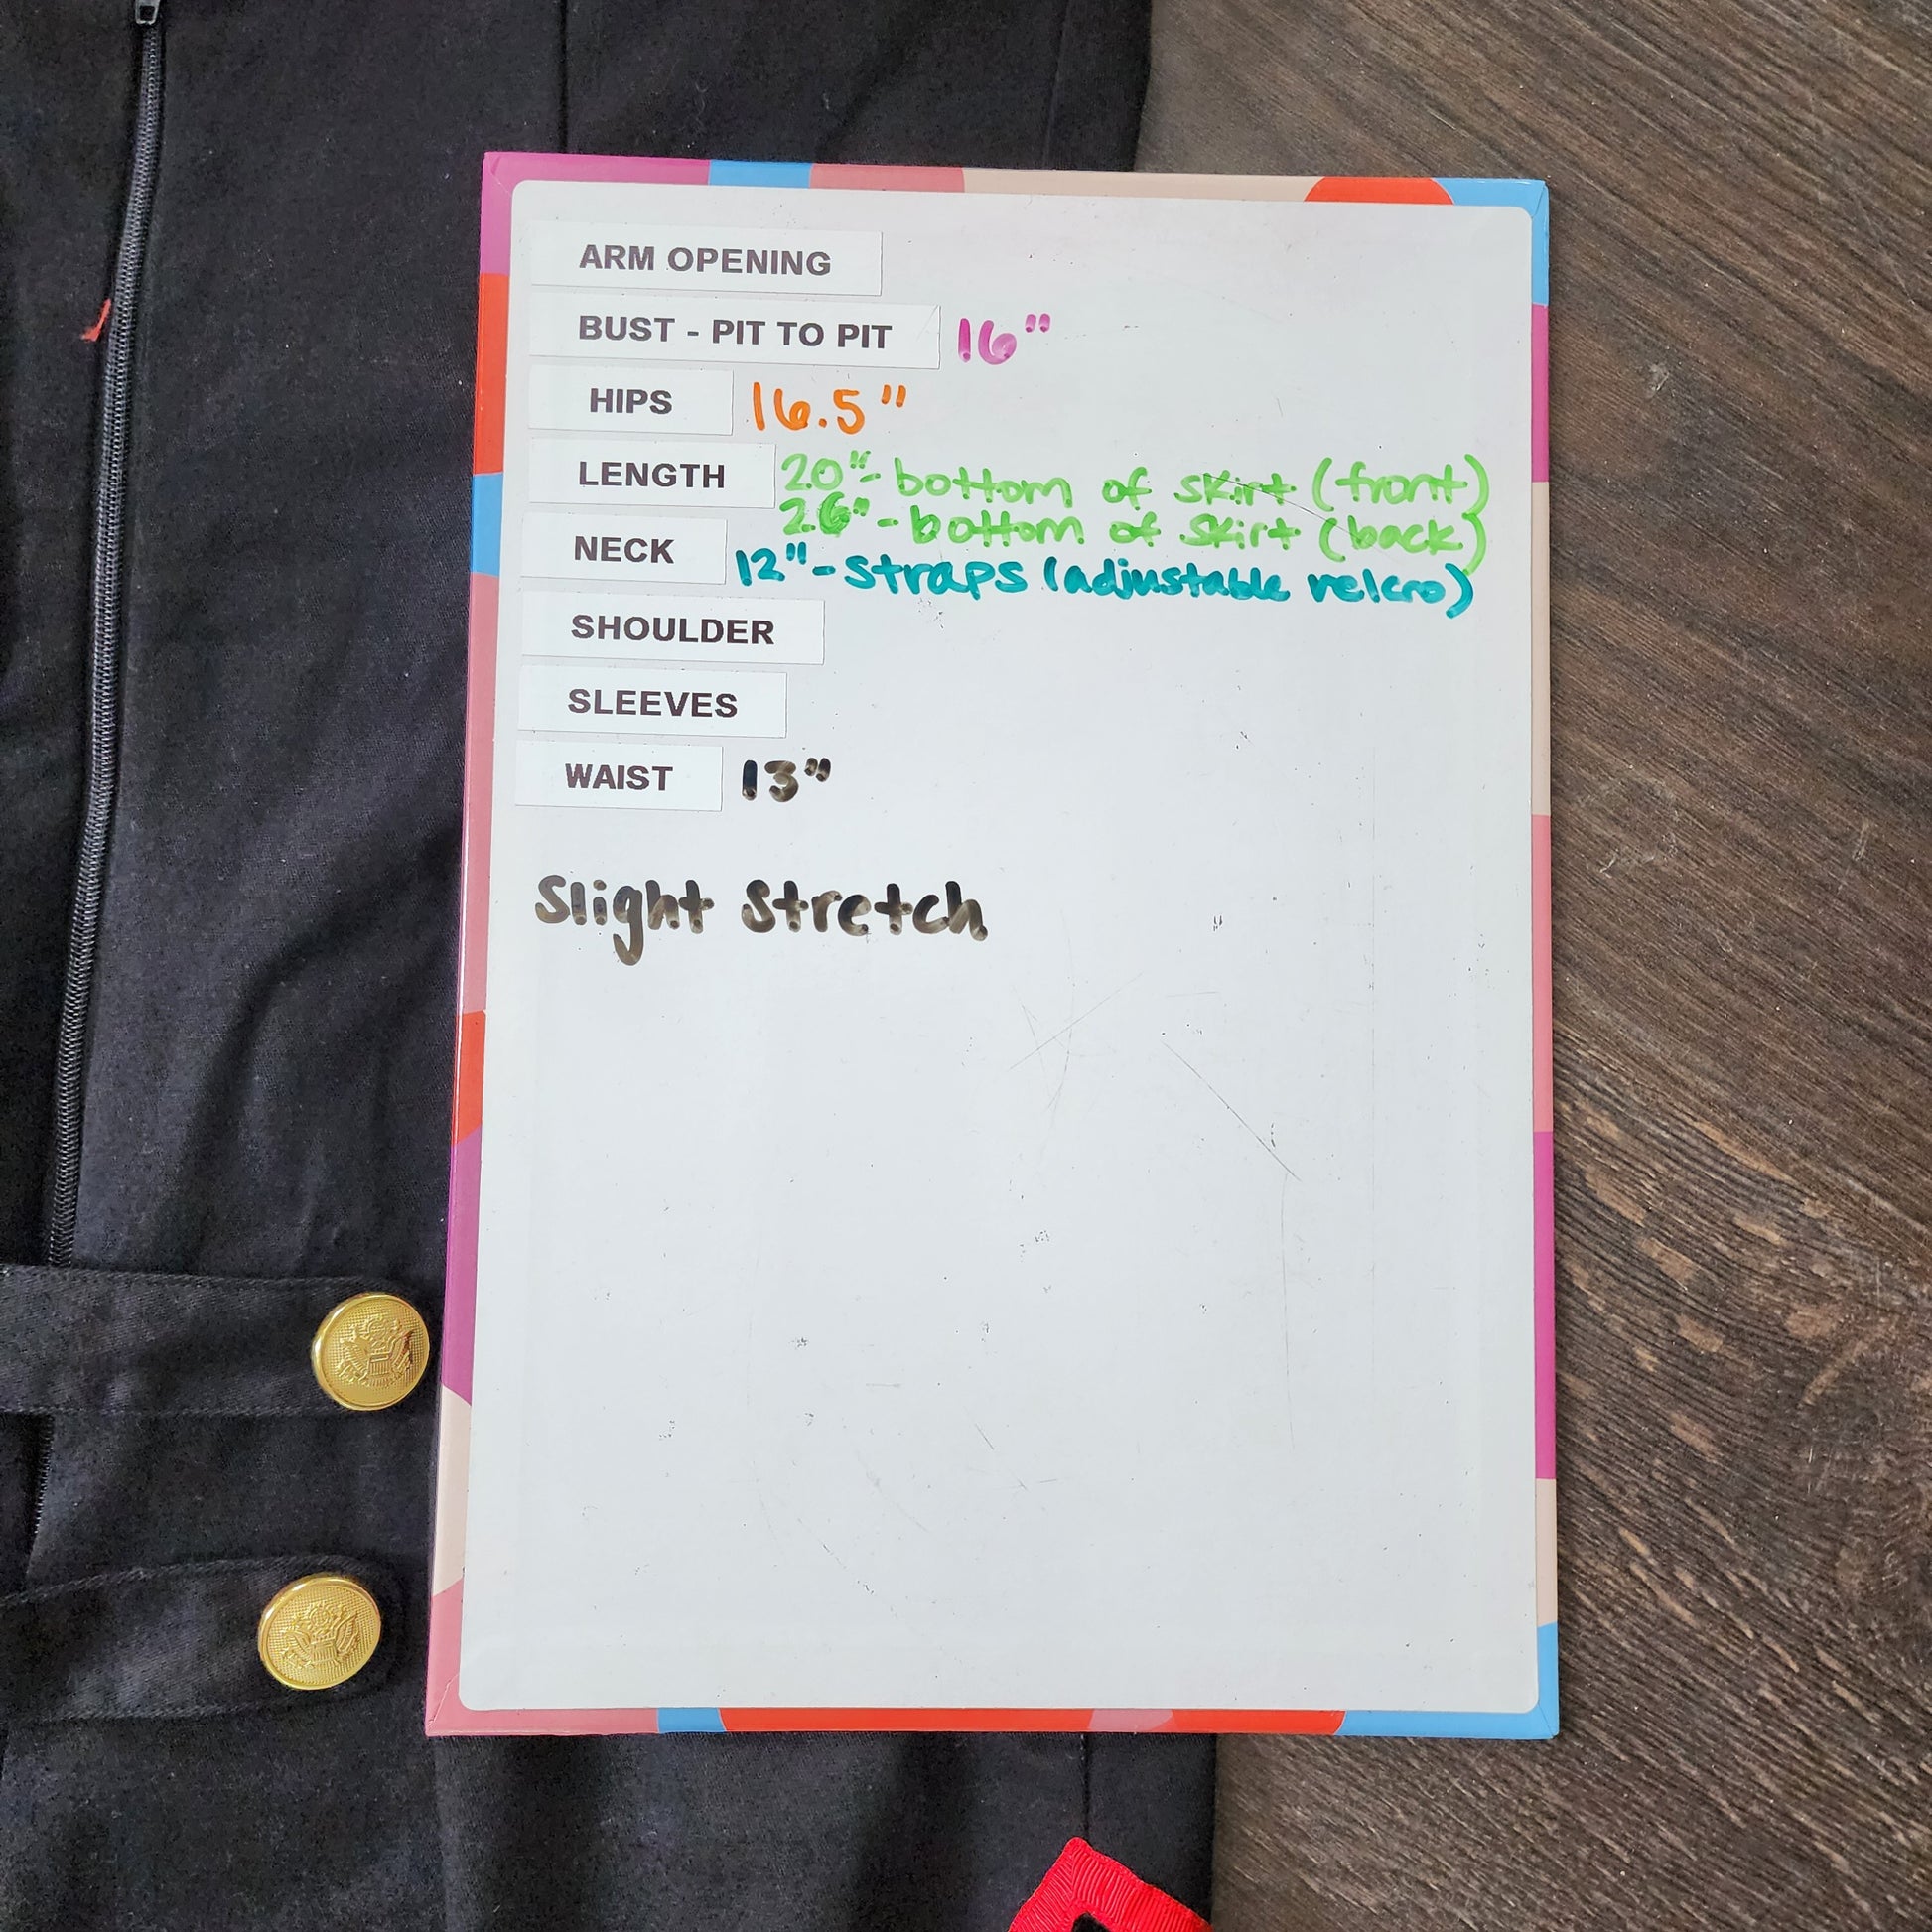 ARM OPENING
BUST - PIT TO PIT 16"
HIPS 16.5"
LENGTH 20"- bottom of skirt (front)
26"- bottom of skirt (back)
NECK 12"- straps (adjustable velcro)
SHOULDER
SLEEVES
WAIST 13"
Slight Stretch